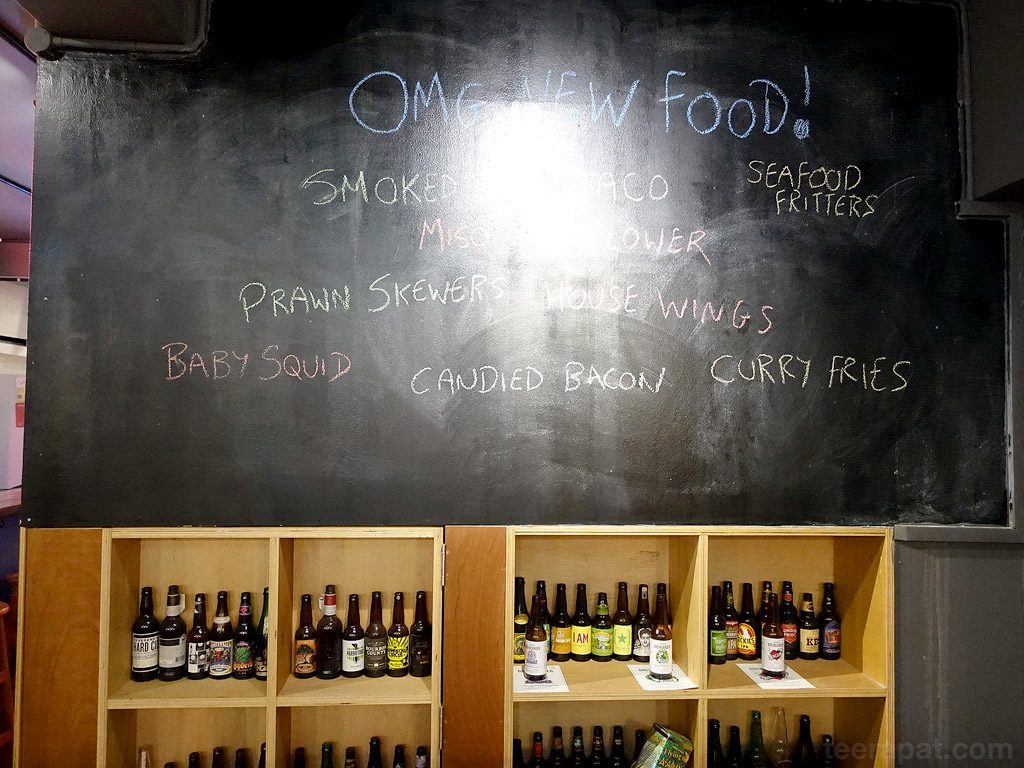 OMG NEW FOOD!
SMOKED TACO
SEAFOOD
FRITTERS
MISO
PRAWN SKEWERS HOUSE WINGS
BABY SQUID
CANDIED BACON
CURRY FRIES
HARD
BOURBON
COUNTY
I AM
teerapat.com